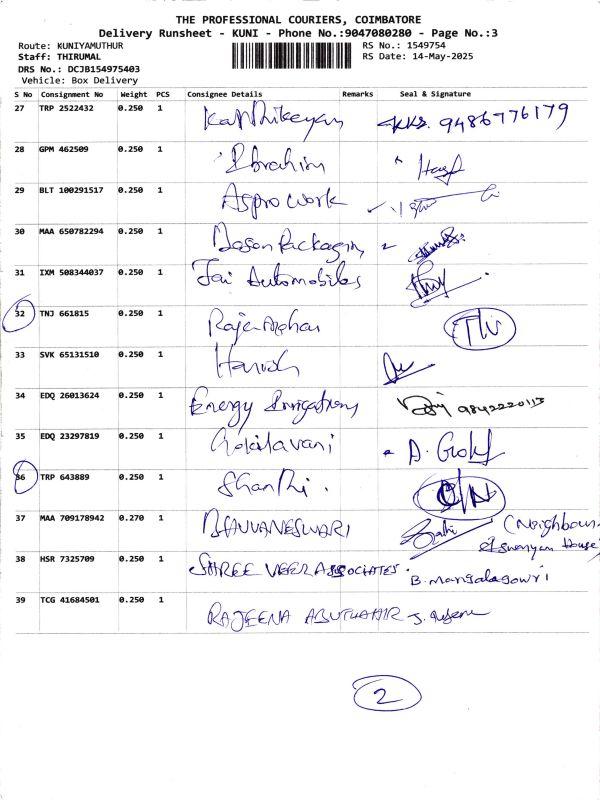 THE PROFESSIONAL COURIERS, COIMBATORE
Delivery Runsheet - KUNI - Phone No.:9047080280 - Page No.:3
Route: KUNIYAMUTHUR RS No.: 1549754
Staff: THIRUMAL RS Date: 14-May-2025
DRS No.: DCJB154975403
Vehicle: Box Delivery
S No Consignment No Weight PCS Consignee Details Remarks Seal & Signature
27 TRP 2522432 0.250 1 Karthikeyan KKS. 9486776179
28 GPM 462509 0.250 1 Ibrahim
29 BLT 100291517 0.250 1 Aspro Work
30 MAA 650782294 0.250 1 Packaging
31 IXM 508344037 0.250 1 Jai Automobiles
32 TNJ 661815 0.250 1 Rajamohan
33 SVK 65131510 0.250 1 Harish
34 EDQ 26013624 0.250 1 Energy Irrigation 9842220113
35 EDQ 23297819 0.250 1 Kokilavani
36 TRP 643889 0.250 1 Shanthi.
37 MAA 709178942 0.270 1 BHUVANESWARI (Neighbour House)
38 HSR 7325709 0.250 1 SHREE VEER ASSOCIATES. B. Mangalagowri
39 TCG 41684501 0.250 1 RAJEENA ABUTHAHIR
2